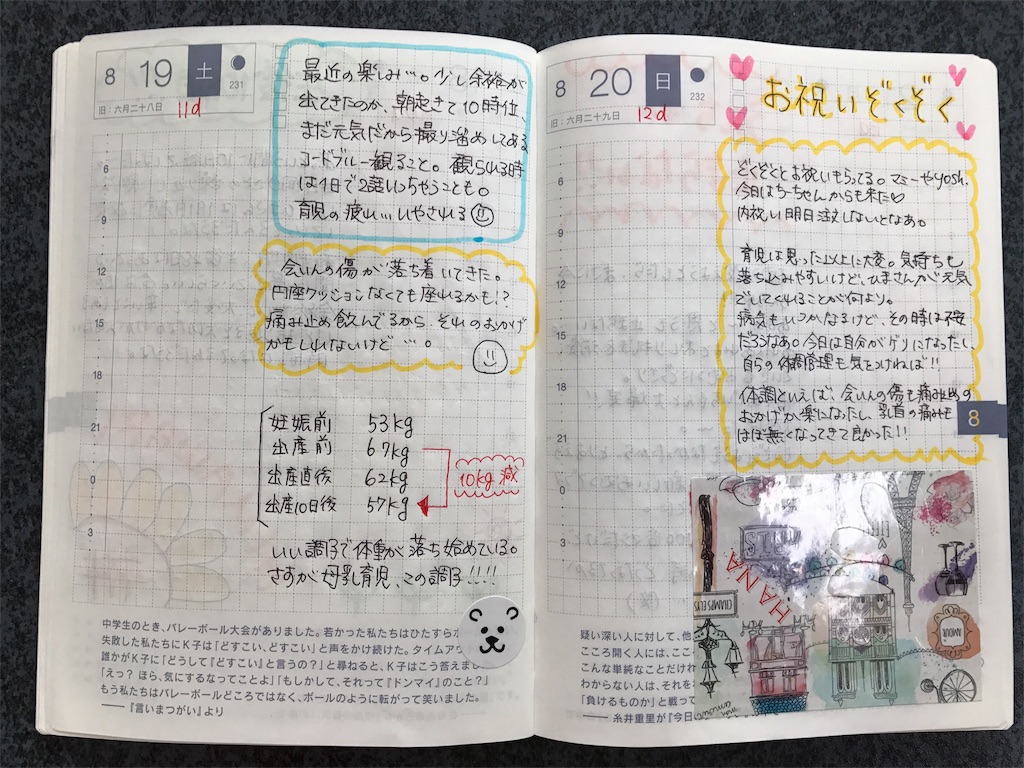 8 19 土 231
旧:六月二十八日
11d
最近の楽しみ…。少し余裕が
出てきたのか、朝起きて10時位、
まだ元気だから撮り溜めしてある
コードブルー観ること。観られる時
は1日で2話いっちゃうことも。
育児の疲れ…いやされる
会いんの傷が落ち着いてきた。
円座クッションなくても座れるかも!?
痛み止め飲んでるから、それのおかげ
かもしれないけど…。
妊娠前 53kg
出産前 67kg
出産直後 62kg
出産10日後 57kg
10kg減
いい調子で体重が落ち始めている。
さすが母乳育児、この調子!!!!
6
9
12
15
18
21
0
3
中学生のとき、バレーボール大会がありました。若かった私たちはひたすら
失敗した私たちにK子は「どすこい、どすこい」と声をかけ続けた。タイムア
誰かがK子に「どうして『どすこい』と言うの?」と尋ねると、K子はこう答えまし
「えっ? ほら、気にするなってことよ」「もしかして、それって『ドンマイ』のこと?」
もう私たちはバレーボールどころではなく、ボールのように転がって笑いました。
――『言いまつがい』より
8 20 日 232
旧:六月二十九日
12d
お祝いぞくぞく
ぞくぞくとお祝いもらってる。マミーやyosh.
今日はちーちゃんからも来た♡
内祝い明日注文しないとなあ。
育児は思った以上に大変。気持ちも
落ち込みやすいけど、ひまさんが元気
でいてくれることが何より。
病気もいつかなるけど、その時は不安
だろうなあ。今日は自分がゲリになったし、
自らの体調管理も気をつければ!!
体調といえば、会いんの傷も痛み止めの
おかげか楽になったし、乳首の痛みも
ほぼ無くなってきて良かった!!
6
9
12
15
18
21
0
3
8
HANA
CHAMPS ELYS
AMOUR
疑い深い人に対して、他
こころ開く人には、ここ
こんな単純なことだけれ
わからない人は、それを
「負けるものか」と戦って
――糸井重里が『今日